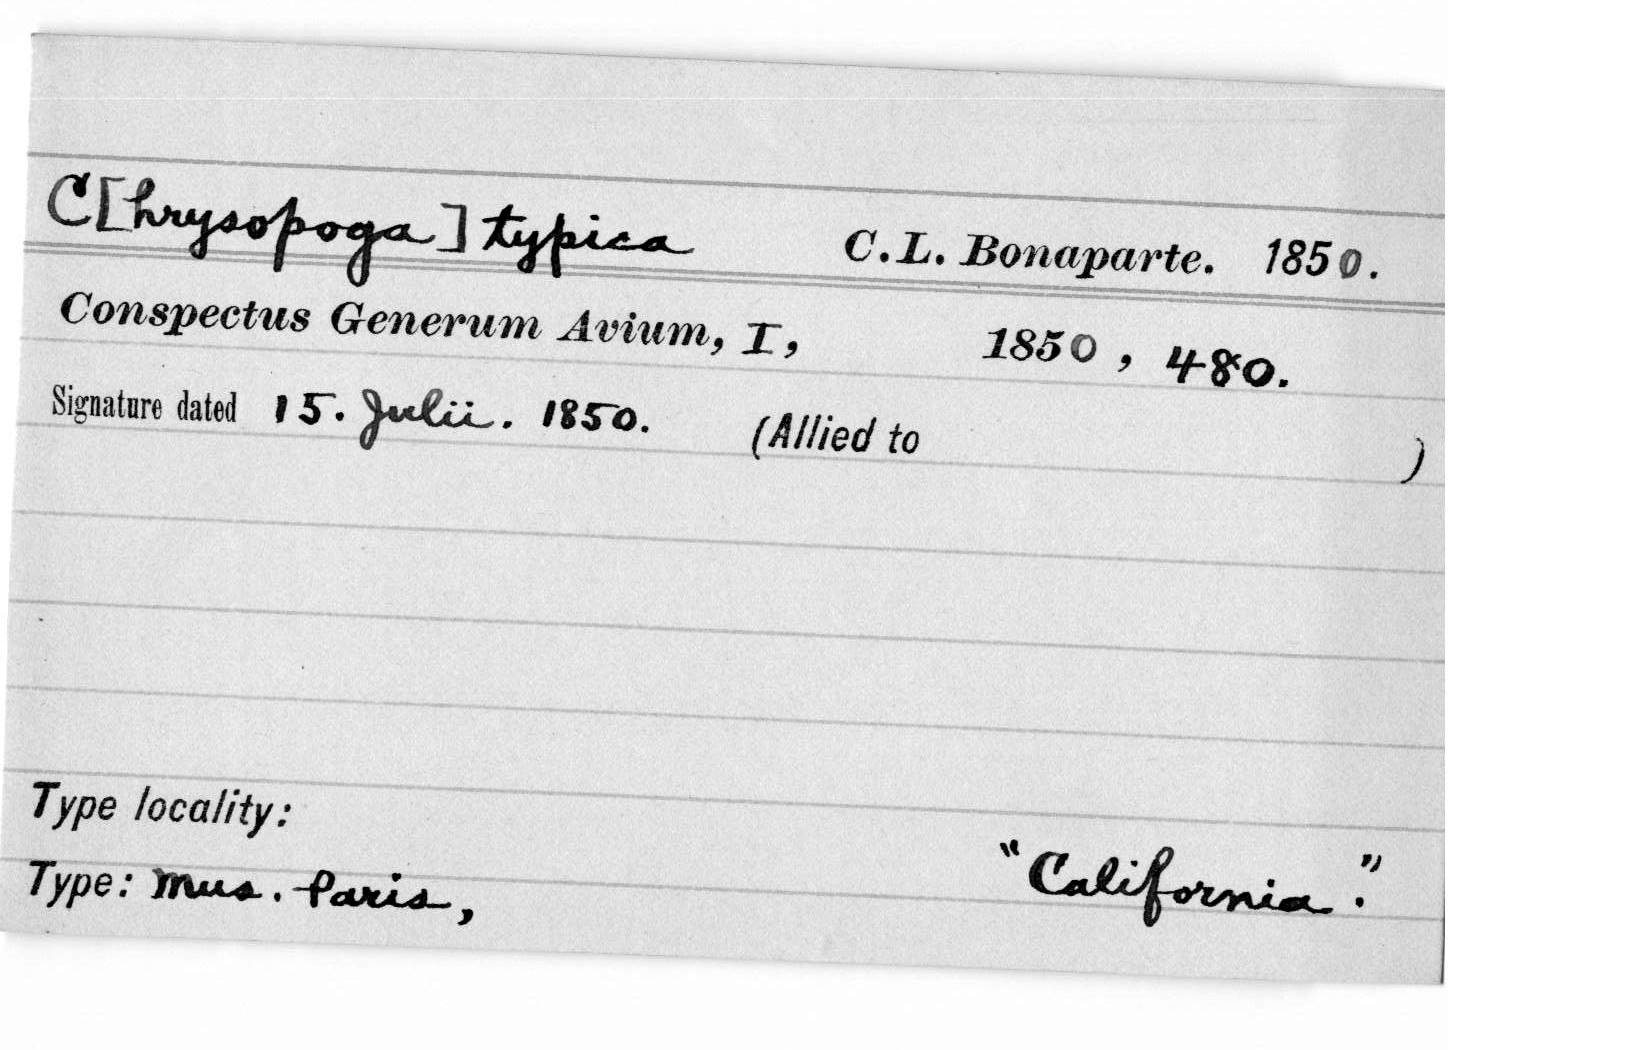 C[hrysopoga] typica C.L. Bonaparte. 1850.
Conspectus Generum Avium, I, 1850, 480.
Signature dated 15. Julii. 1850. (Allied to )
Type locality:
"California."
Type: Mus. Paris,